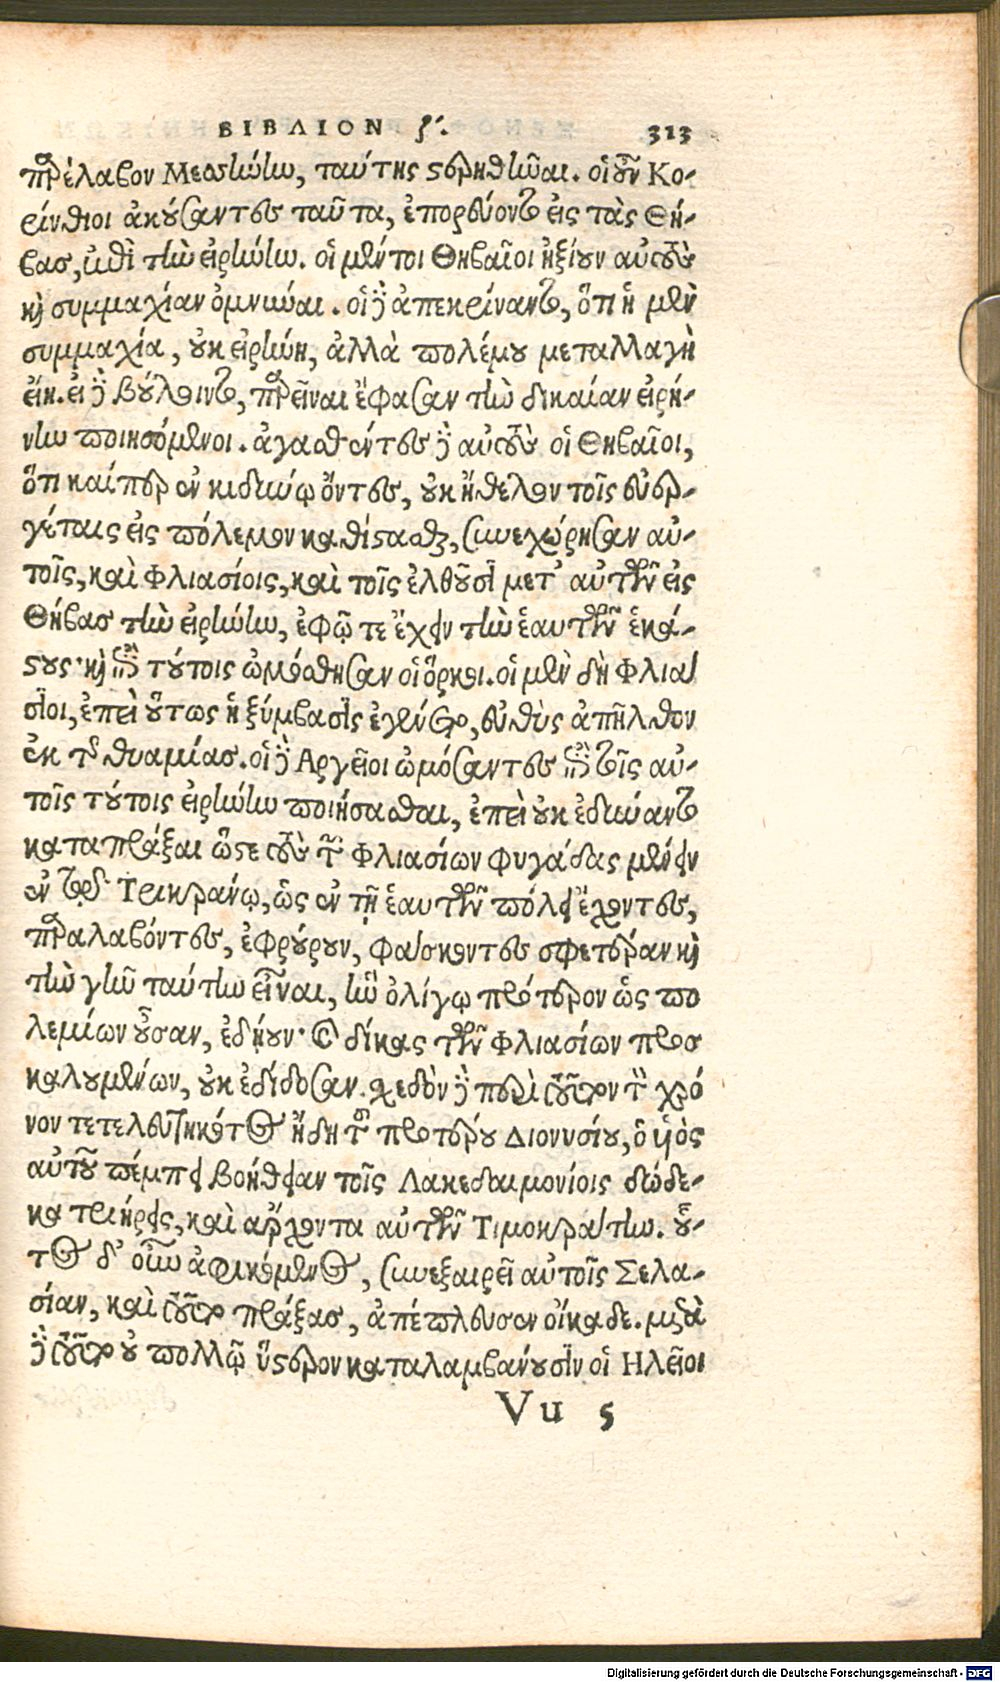 ΒΙΒΛΙΟΝ ζ΄. 313
παρέλαβον Μεσσήνην, ταύτης στερηθῆναι. οἱ οὖν Κο-
ρίνθιοι ἀκούσαντες ταῦτα, ἐπορεύοντο εἰς τὰς Θή-
βας, ἐπὶ τὴν εἰρήνην. οἱ μέντοι Θηβαῖοι ἠξίουν αὐτοὺς
καὶ συμμαχίαν ὀμνύναι. οἱ δὲ ἀπεκρίναντο, ὅτι ἡ μὲν
συμμαχία, οὐκ εἰρήνη, ἀλλὰ πολέμου μεταλλαγὴ
εἴη. εἰ δὲ βούλοιντο, παρεῖναι ἔφασαν τὴν δικαίαν εἰρή-
νην ποιησόμενοι. ἀγασθέντες δὲ αὐτοὺς οἱ Θηβαῖοι,
ὅτι καίπερ ἐν κινδύνῳ ὄντες, οὐκ ἤθελον τοῖς εὐερ-
γέταις εἰς πόλεμον καθίστασθαι, συνεχώρησαν αὐ-
τοῖς, καὶ Φλιασίοις, καὶ τοῖς ἐλθοῦσι μετ' αὐτῶν εἰς
Θήβας τὴν εἰρήνην, ἐφῷ τε ἔχειν τὴν ἑαυτῶν ἑκά-
στους· καὶ ἐπὶ τούτοις ὠμόσθησαν οἱ ὅρκοι. οἱ μὲν δὴ Φλιά
σιοι, ἐπεὶ οὕτως ἡ ξύμβασις ἐγένετο, εὐθὺς ἀπῆλθον
ἐκ τῆς θυαμίας. οἱ δὲ Αργεῖοι ὠμόσαντες ἐπὶ τοῖς αὐ-
τοῖς τούτοις εἰρήνην ποιήσασθαι, ἐπεὶ οὐκ ἐδύναντο
καταπρᾶξαι ὥστε τοὺς τῶν Φλιασίων φυγάδας μένειν
ἐν τῷ Τρικράνῳ, ὡς ἐν τῇ ἑαυτῶν πόλει ἔχοντες,
παραλαβόντες, ἐφρούρουν, φάσκοντες σφετέραν καὶ
τὴν γῆν ταύτην εἶναι, ἣν ὀλίγῳ πρότερον ὡς πο
λεμίων οὖσαν, ἐδῄουν· καὶ δίκας τῶν Φλιασίων προσ
καλουμένων, οὐκ ἐδίδοσαν. σχεδὸν δὲ περὶ τοῦτον τὸν χρό
νον τετελευτηκότος ἤδη τοῦ προτέρου Διονυσίου, ὁ υἱὸς
αὐτοῦ πέμπει βοήθειαν τοῖς Λακεδαιμονίοις δώδε-
κα τριήρεις, καὶ ἄρχοντα αὐτῶν Τιμοκράτην. οὗ-
τος δ' οὖν ἀφικόμενος, συνεξαιρεῖ αὐτοῖς Σελα-
σίαν, καὶ τοῦτο πράξας, ἀπέπλευσεν οἴκαδε. μετὰ
δὲ τοῦτο οὐ πολλῷ ὕστερον καταλαμβάνουσιν οἱ Ηλεῖοι
Vu 5
Digitalisierung gefördert durch die Deutsche Forschungsgemeinschaft - DFG